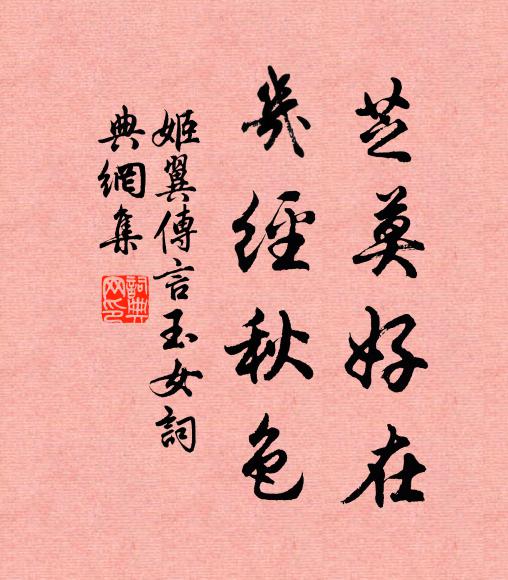 芝英好在
幾經秋色
姬翼傳言玉女詞
典網集
詞典
网印